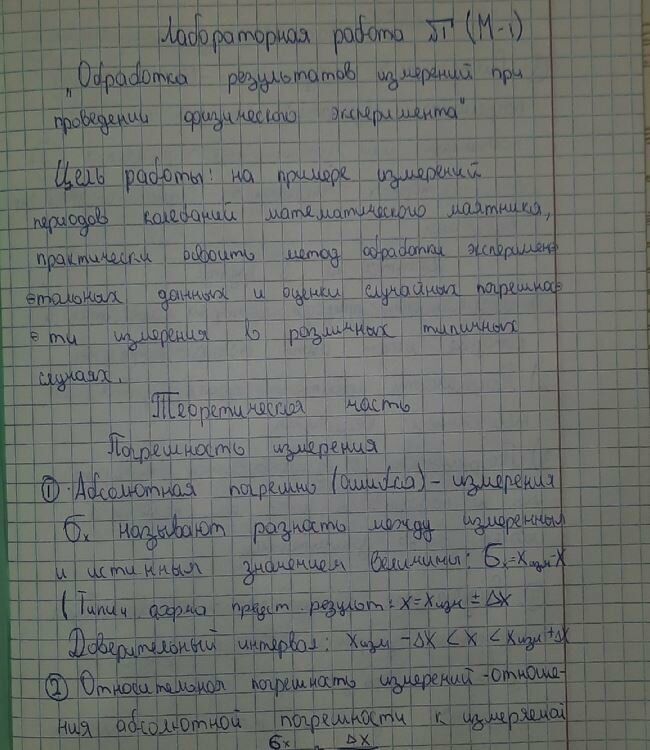 Лабораторная работа №1 (М-1)
"Обработка результатов измерений при
проведении физического эксперимента"
Цель работы: на примере измерений
периодов колебаний математического маятника,
практически освоить метод обработки эксперимен-
-тальных данных и оценки случайных погрешнос-
-ти измерения в различных типичных
случаях.
Теоретическая часть
Погрешность измерения
① Абсолютная погрешно (ошибка) - измерения
бₓ называют разность между измеренным
и истинным значением величины: бₓ=xизм-x
(Типич форма предст. результ: x=xизм ± Δx
Доверительный интервал: xизм -Δx < x < xизм+Δx
② Относительная погрешность измерений -отноше-
ния абсолютной погрешности к измеряемой
бₓ Δx